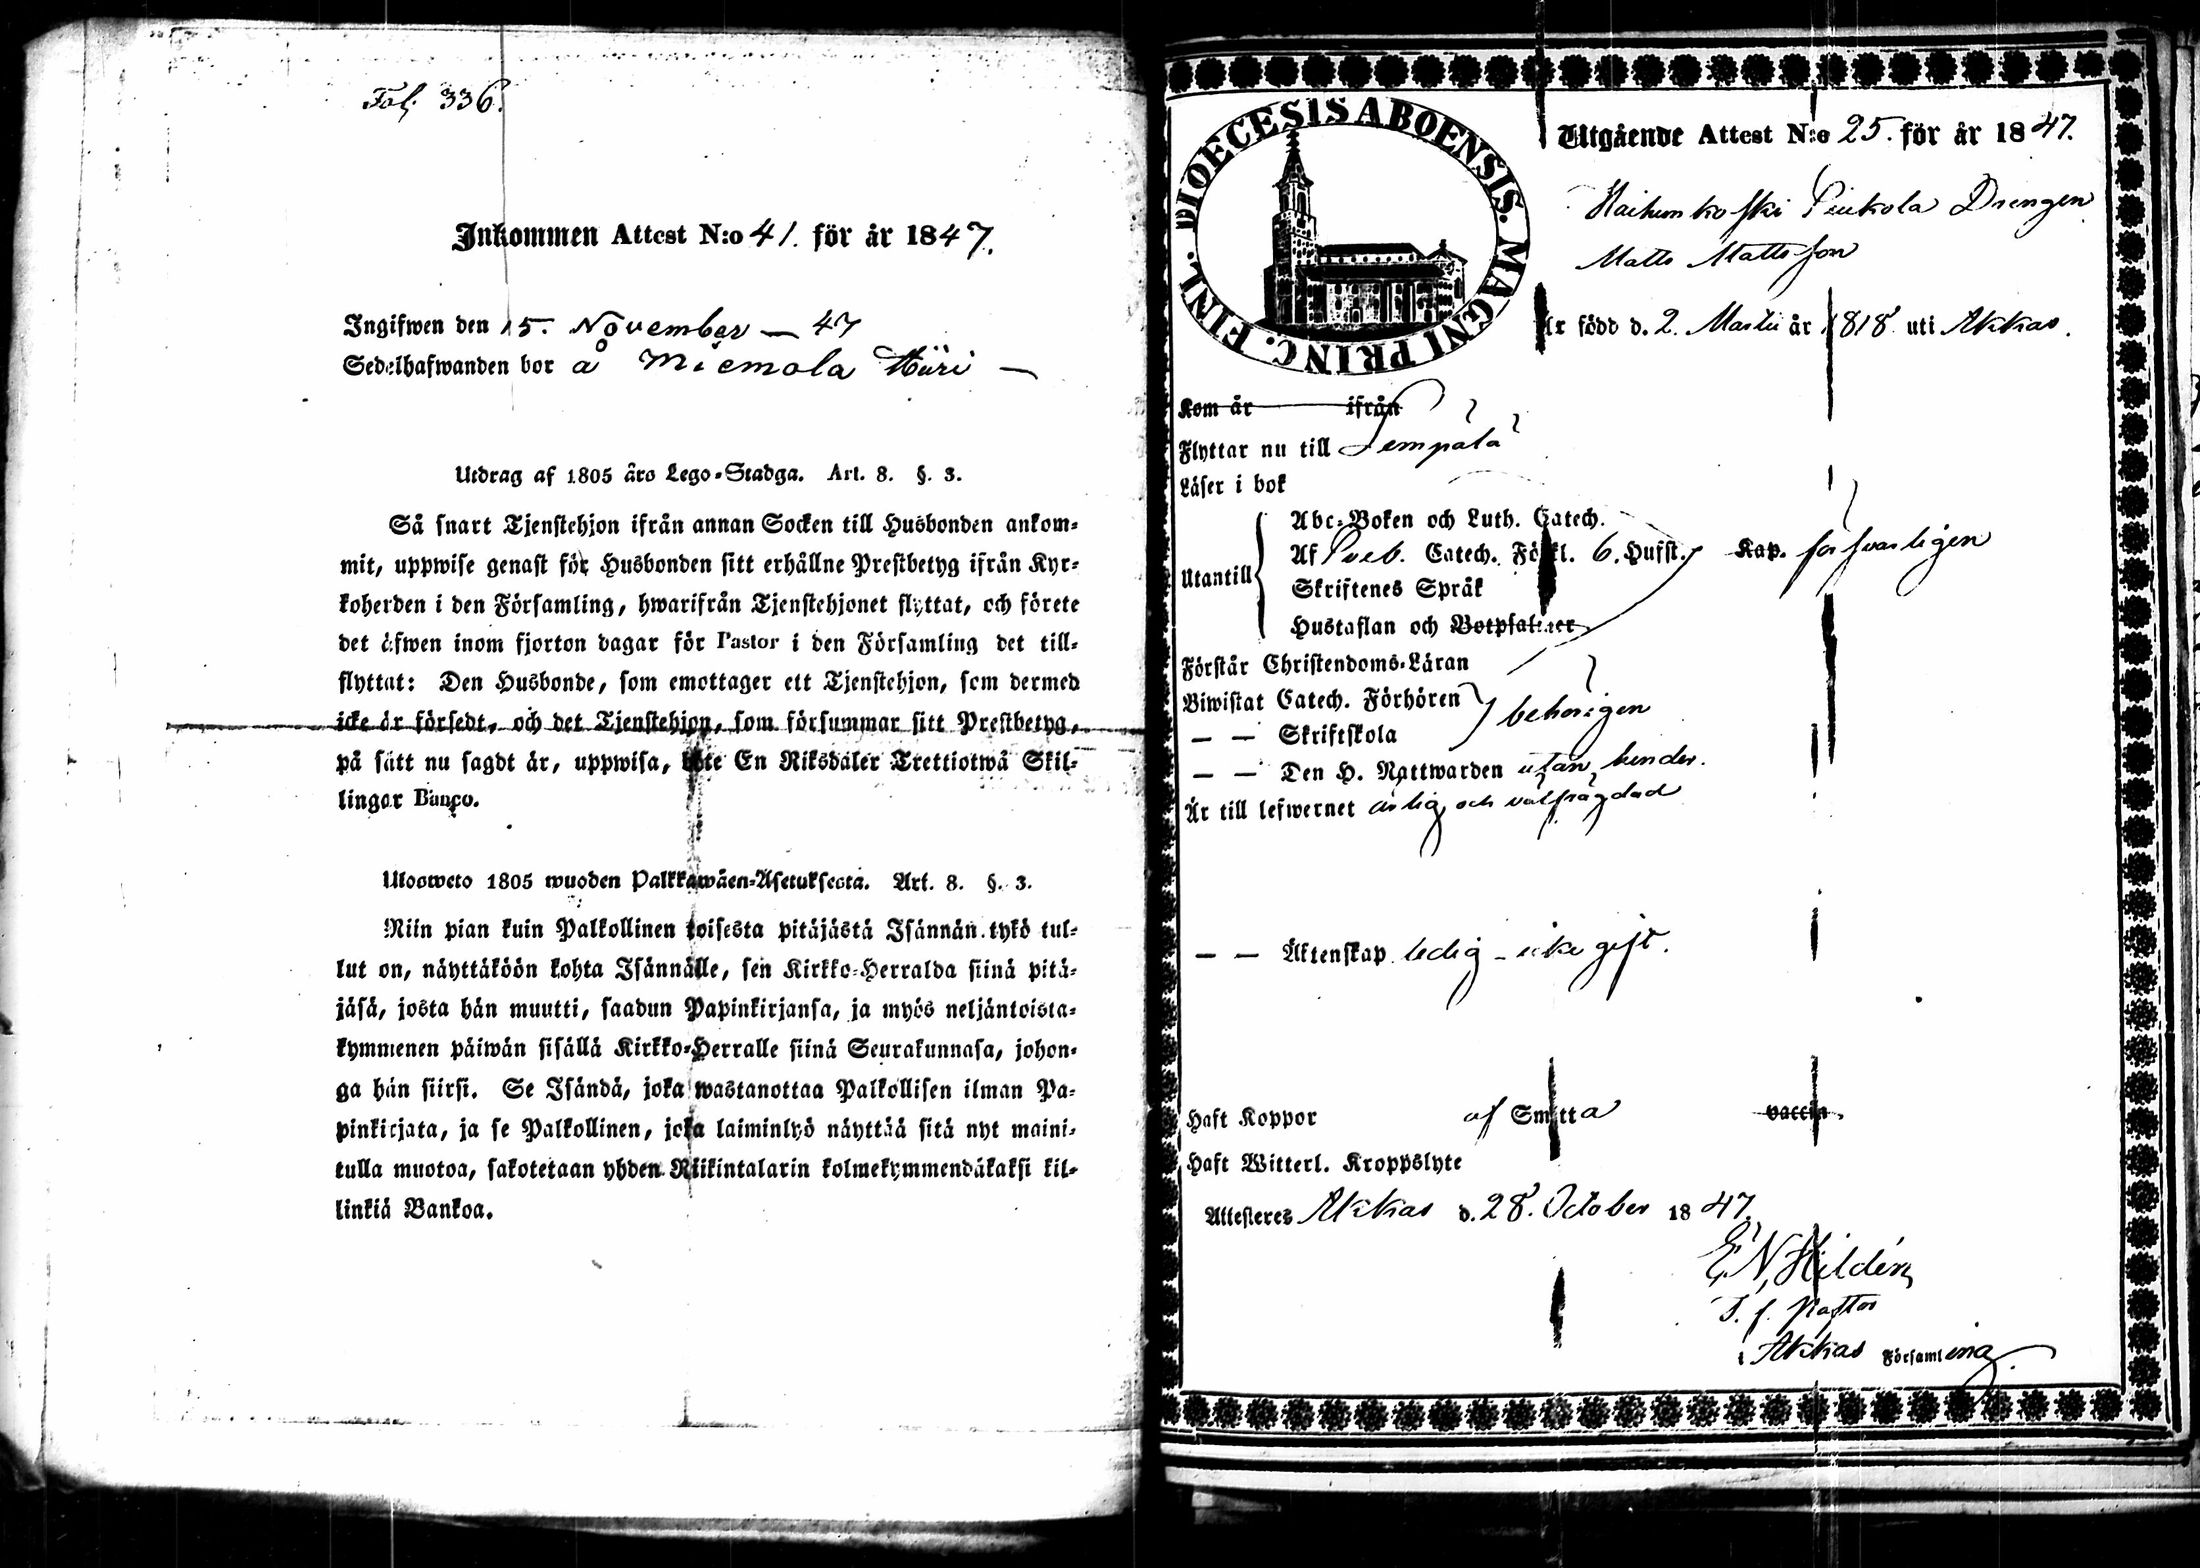 Fol. 336.
Inkommen Attest N:o 41. för år 1847.
Ingifwen den 15. November — 47
Sedelhafwanden bor å Miemola Hüri —
Utdrag af 1805 års Lego-Stadga. Art. 8. §. 3.
Så snart Tjenstehjon ifrån annan Socken till Husbonden ankom-
mit, uppwise genast för Husbonden sitt erhållne Prestbetyg ifrån Kyr-
koherden i den Församling, hwarifrån Tjenstehjonet flyttat, och förete
det äfwen inom fjorton dagar för Pastor i den Församling det till-
flyttat: Den Husbonde, som emottager ett Tjenstehjon, som dermed
icke är försedt, och det Tjenstehjon, som försummar sitt Prestbetyg,
på sätt nu sagdt är, uppwisa, böte En Riksdaler Trettiotwå Skil-
lingar Banco.
Ulosweto 1805 wuoden Palkkawäen-Asetuksesta. Art. 8. §. 3.
Niin pian kuin Palkollinen toisesta pitäjästä Isännän tykö tul-
lut on, näyttäköön kohta Isännälle, sen Kirkko-Herralda siinä pitä-
jäsä, josta hän muutti, saadun Papinkirjansa, ja myös neljäntoista-
kymmenen päiwän sisällä Kirkko-Herralle siinä Seurakunnasa, johon-
ga hän siirsi. Se Isändä, joka wastanottaa Palkollisen ilman Pa-
pinkirjata, ja se Palkollinen, joka laiminlyö näyttää sitä nyt maini-
tulla muotoa, sakotetaan yhden Riikintalarin kolmekymmendäkaksi kil-
linkiä Bankoa.
DIOECESIS ABOENSIS. MAGNI PRINC. FINL.
Utgående Attest N:o 25. för år 1847.
Haihunkoski Peukola Drengen
Matts Mattsson
Är född d. 2. Martii år 1818 uti Akkas.
Kom år ifrån
Flyttar nu till Lempälä
Läser i bok
Abc-Boken och Luth. Catech.
Utantill Af Sveb. Catech. Förkl. 6. Hufst. Kap. försvarligen
Skriftenes Språk
Hustaflan och Botpsalmer
Förstår Christendoms-Läran
Biwistat Catech. Förhören behörigen
— — Skriftskola
— — Den H. Nattwarden utan hinder.
Är till lefwernet ärlig och välfrägdad
— — Äktenskap ledig – icke gift.
Haft Koppor af Smitta vaccin.
Haft Witterl. Kroppslyte
Attesteres Akkas d. 28. October 1847.
E. N. Hildén
T. f. Pastor
i Akkas Församling.